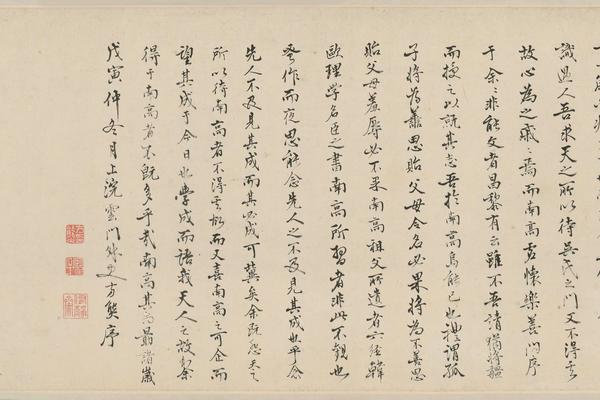 識與人吾求天之所以待吳氏之門又不得其
故心為之戚〻焉而南高虛懷樂善問序
于余〻非能文者昌黎有云雖不吾請猶將強
而授之以既其志吾於南高烏能已也禮謂孤
子將為善思貽父母令名必果將為不善思
貽父母羞辱必不果南高祖父所道者六經韓
歐理學名臣之書南高所習者非此不覩也
蚤作而夜思能念先人之不及見其成也乎念
先人不及見其成而其必成可冀矣余既怨天之
所以待南高者不得其故而又喜南高之可企而
望其成于今日也學成而語我天人之故則余
得于南高者不既多乎哉南高其勗諸歲
戊寅仲冬月上浣雲門外史方熊序